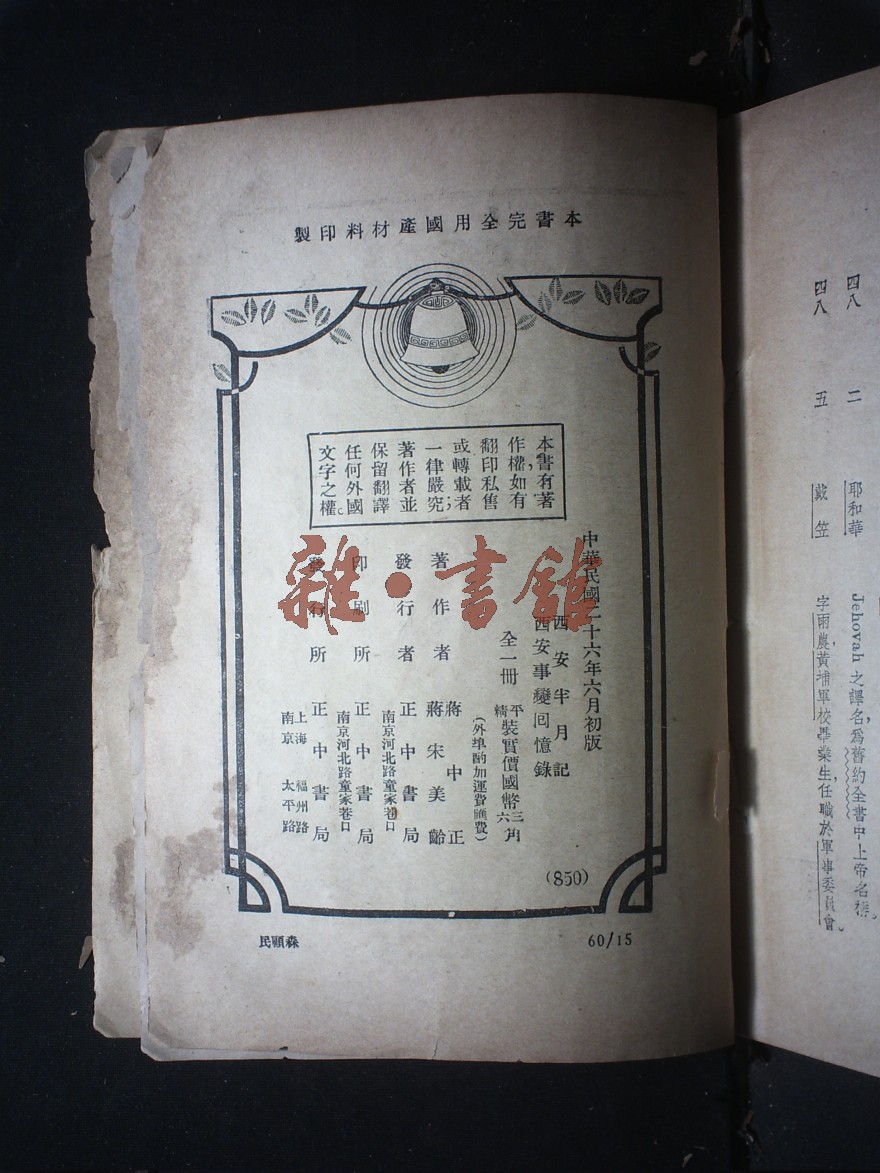 本書完全用國產材料印製
本書有著
作權，如有
翻印私售
或轉載者
一律嚴究；
著作者並
保留翻譯
任何外國
文字之權。
中華民國二十六年六月初版
西安半月記
西安事變回憶錄
全一冊 平精裝實價國幣三六角
（外埠酌加運費匯費）
著作者 蔣中正 蔣宋美齡
發行者 正中書局
南京河北路童家巷口
印刷所 正中書局
南京河北路童家巷口
發行所 正中書局
上海 福州路
南京 太平路
(850)
民顧森
60/15
雜·書館
四八 二 耶和華 Jehovah 之譯名，為舊約全書中上帝名稱。
四八 五 戴笠 字雨農，黃埔軍校畢業生，任職於軍事委員會。